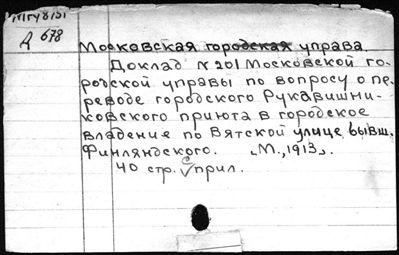 Д 678
Московская городская управа.
Доклад № 201 Московской го-
родской управы по вопросу о пе-
реводе городского Рукавишни-
ковского приюта в городское
владение по Вятской улице бывш.
Финляндского. „М.,1913„.
40 стр. с прил.